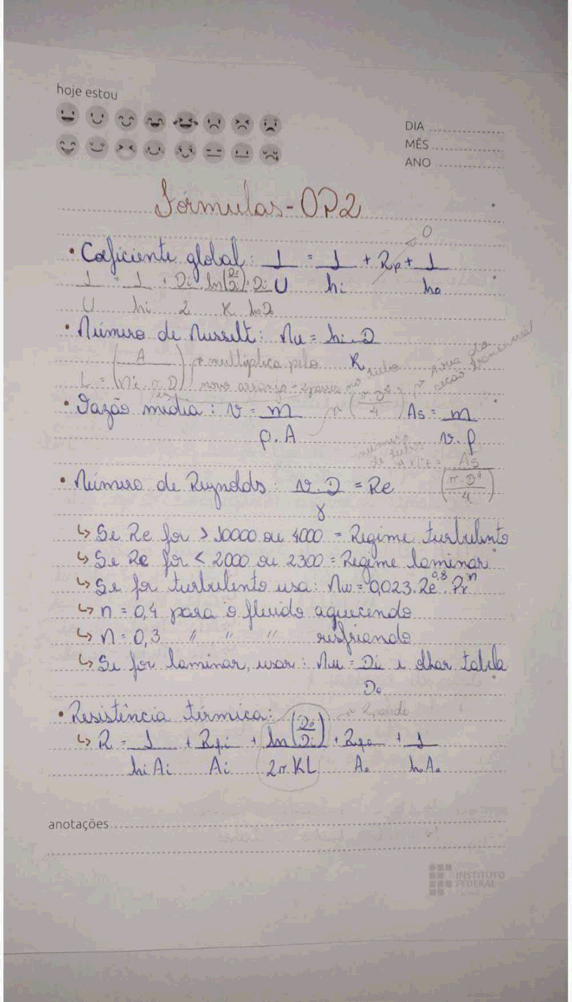 hoje estou
DIA
MÊS
ANO
Fórmulas - OP2
• Coeficiente global: 1/U = 1/hi + Rp + 1/ho
0
1/U = 1/hi + Di/2
• Número de Nusselt: Nu = hi.D/K
L = (A/(Ni.π.D)) multiplica pelo
novo arranjo
• Vazão média: v = m/ρ.A As = m/v.ρ
(π.D²/4) Área da seção transversal
número de tubo
As/(π.D²/4)
• Número de Reynolds: v.D/γ = Re
↳ Se Re for > 10000 ou 4000 = Regime turbulento
↳ Se Re for < 2000 ou 2300 = Regime laminar
↳ Se for turbulento usa: Nu = 0,023.Re^0,8.Pr^n
↳ n = 0,4 para o fluido aquecendo
↳ n = 0,3 " " " resfriando
↳ Se for laminar, usar: Nu = Di/Do e olhar tabela
• Resistência térmica:
↳ R = 1/hiAi + Rfi/Ai + ln(Do/Di)/2πKL + Rfo/Ao + 1/hoAo
anotações
INSTITUTO
FEDERAL